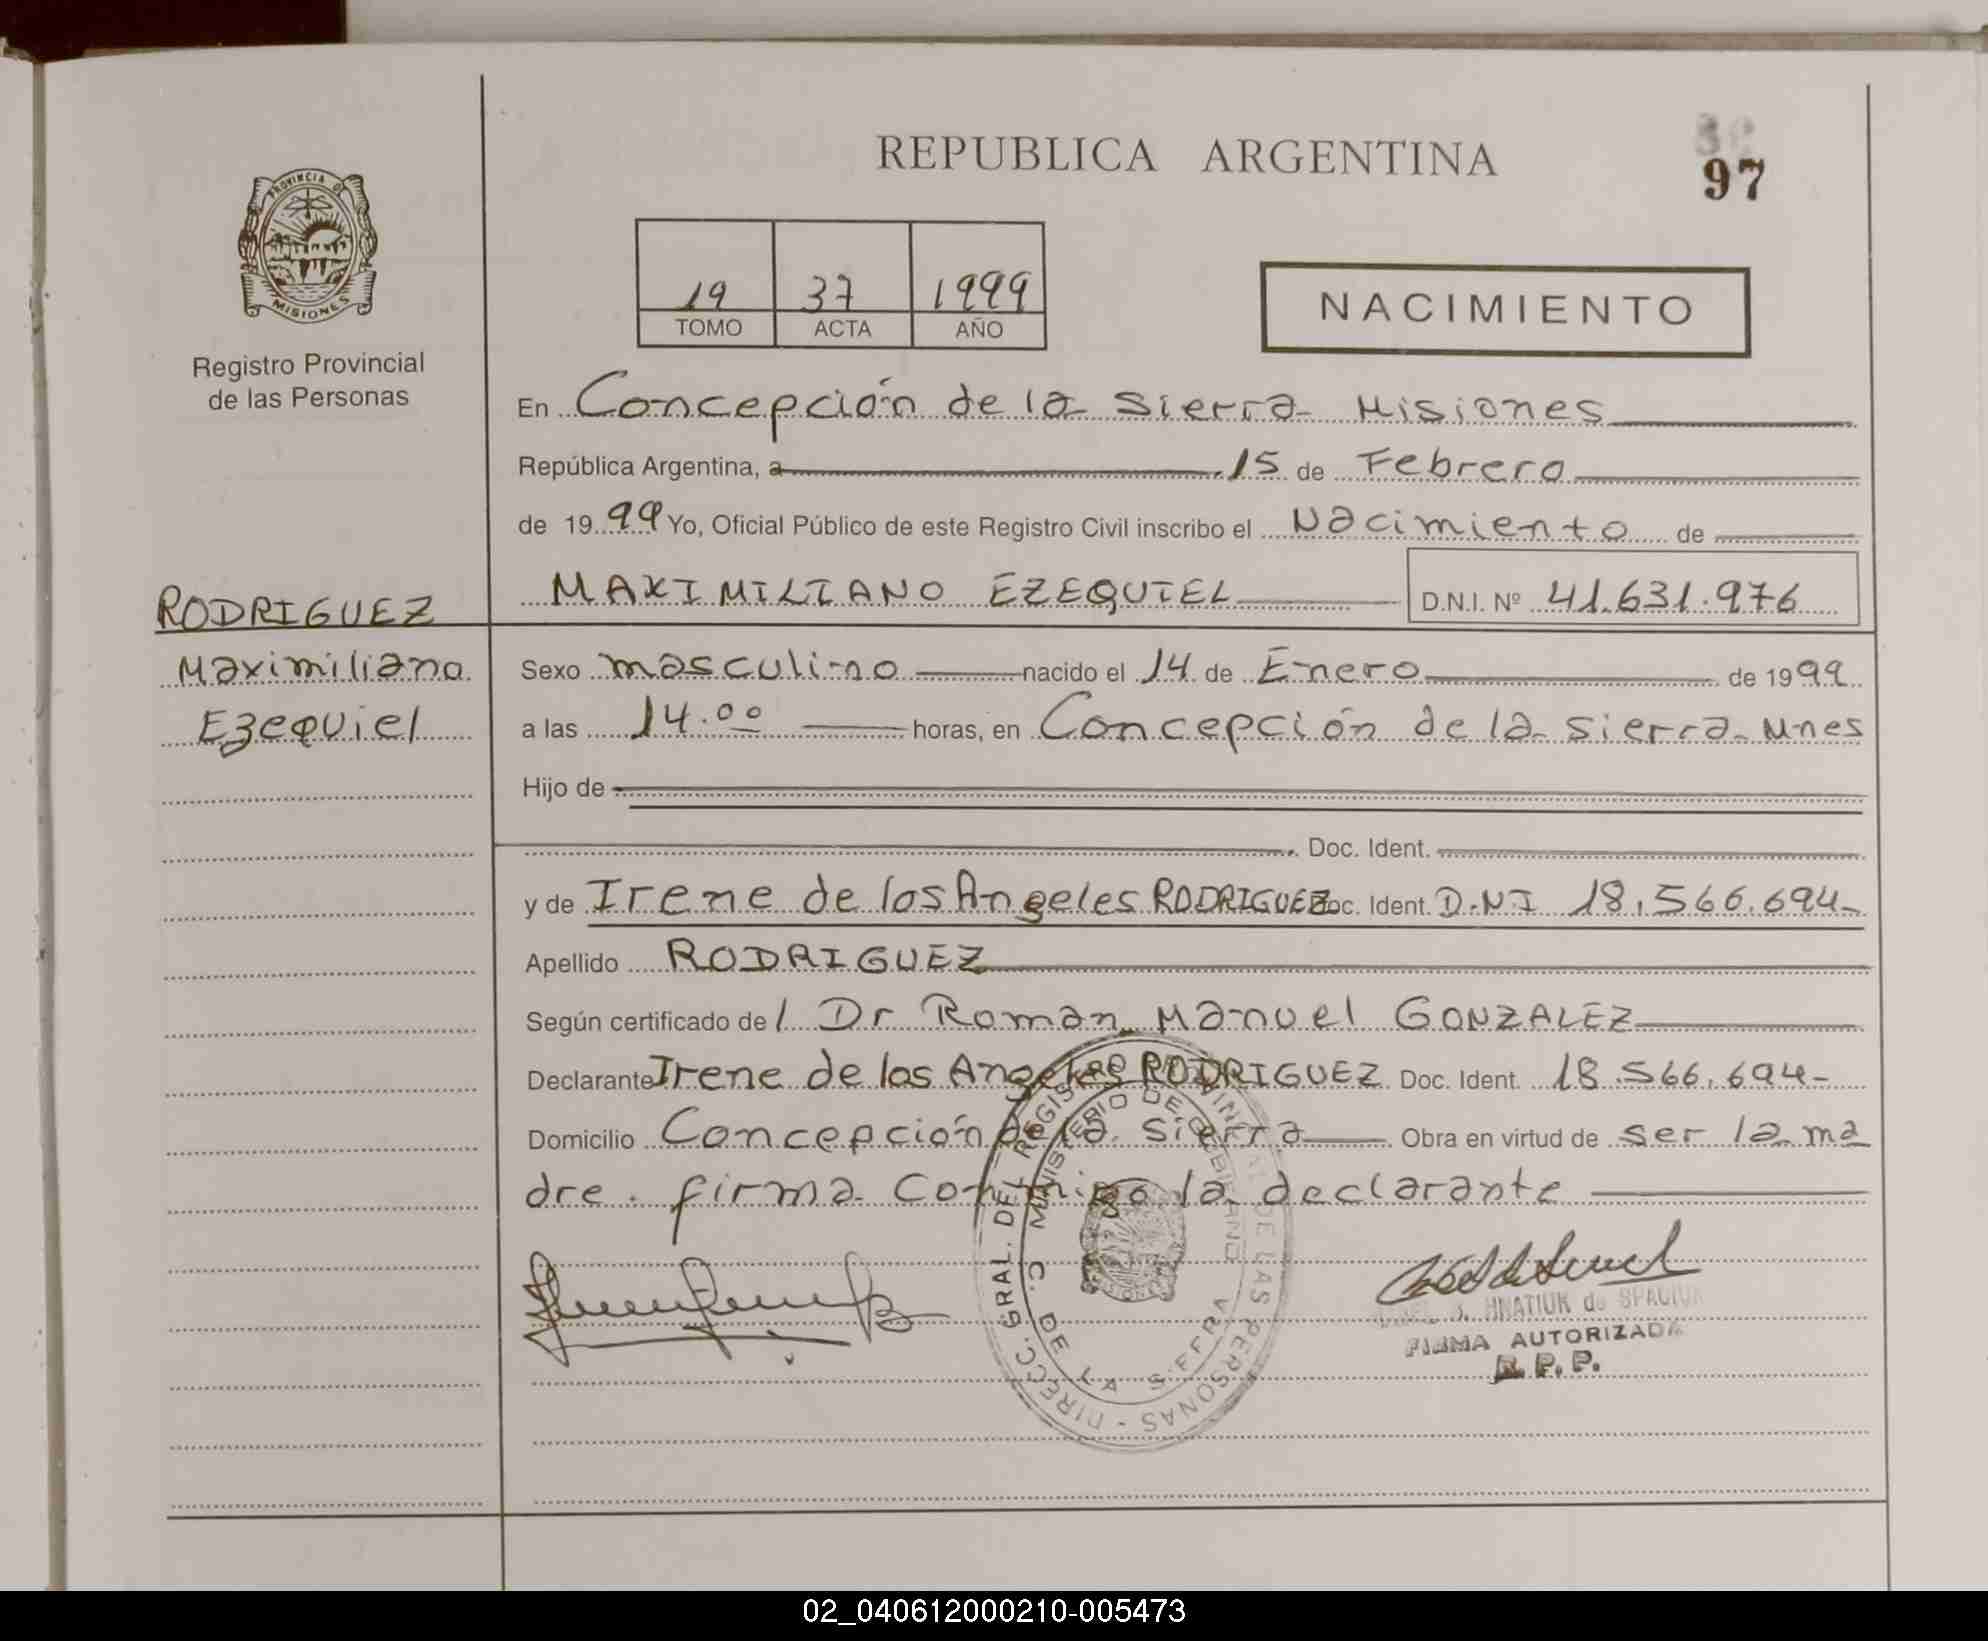 REPUBLICA ARGENTINA
97
PROVINCIA DE
MISIONES
Registro Provincial
de las Personas
19 37 1999
TOMO ACTA AÑO
NACIMIENTO
En Concepción de la Sierra Misiones
República Argentina, a 15 de Febrero
de 1999 Yo, Oficial Público de este Registro Civil inscribo el Nacimiento de
MAXIMILIANO EZEQUIEL D.N.I. Nº 41.631.976
RODRIGUEZ
Maximiliano
Ezequiel
Sexo masculino nacido el 14 de Enero de 1999
a las 14.00 horas, en Concepción de la Sierra Mnes
Hijo de
Doc. Ident.
y de Irene de los Angeles RODRIGUEZ Doc. Ident. D.N.I 18.566.694-
Apellido RODRIGUEZ
Según certificado del Dr Roman Manuel GONZALEZ
Declarante Irene de los Angeles RODRIGUEZ Doc. Ident. 18.566.694-
Domicilio Concepción de la Sierra Obra en virtud de ser la ma
dre. firma conmigo la declarante
DIRECC. GRAL. DEL REGISTRO PROVINCIAL DE LAS PERSONAS
MINISTERIO DE GOBIERNO
C. DE LA SIERRA
HNATIUK de
FIRMA AUTORIZADA
R. P. P.
02_040612000210-005473